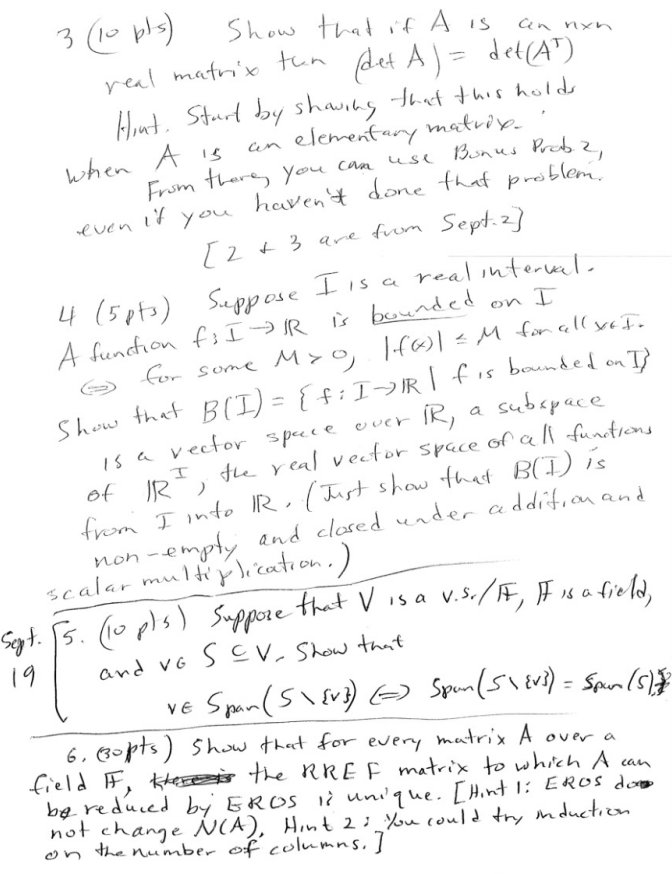 3 (10 pts) Show that if A is an nxn
real matrix then (det A) = det(Aᵀ)
Hint. Start by showing that this holds
when A is an elementary matrix.
From there, you can use Bonus Prob 2,
even if you haven't done that problem.
[2 + 3 are from Sept. 2]
4 (5 pts) Suppose I is a real interval.
A function f: I → ℝ is bounded on I
⇔ for some M > 0, |f(x)| ≤ M for all x ∈ I.
Show that B(I) = {f: I → ℝ | f is bounded on I}
is a vector space over ℝ, a subspace
of ℝᴵ, the real vector space of all functions
from I into ℝ. (Just show that B(I) is
non-empty and closed under addition and
scalar multiplication.)
Sept. 19 [5. (10 pts) Suppose that V is a v.s./𝔽, 𝔽 is a field,
and v ∈ S ⊆ V. Show that
v ∈ Span(S \ {v}) ⇔ Span(S \ {v}) = Span(S)
6. (30 pts) Show that for every matrix A over a
field 𝔽, the RREF matrix to which A can
be reduced by EROS is unique. [Hint 1: EROS do
not change N(A). Hint 2: You could try induction
on the number of columns.]